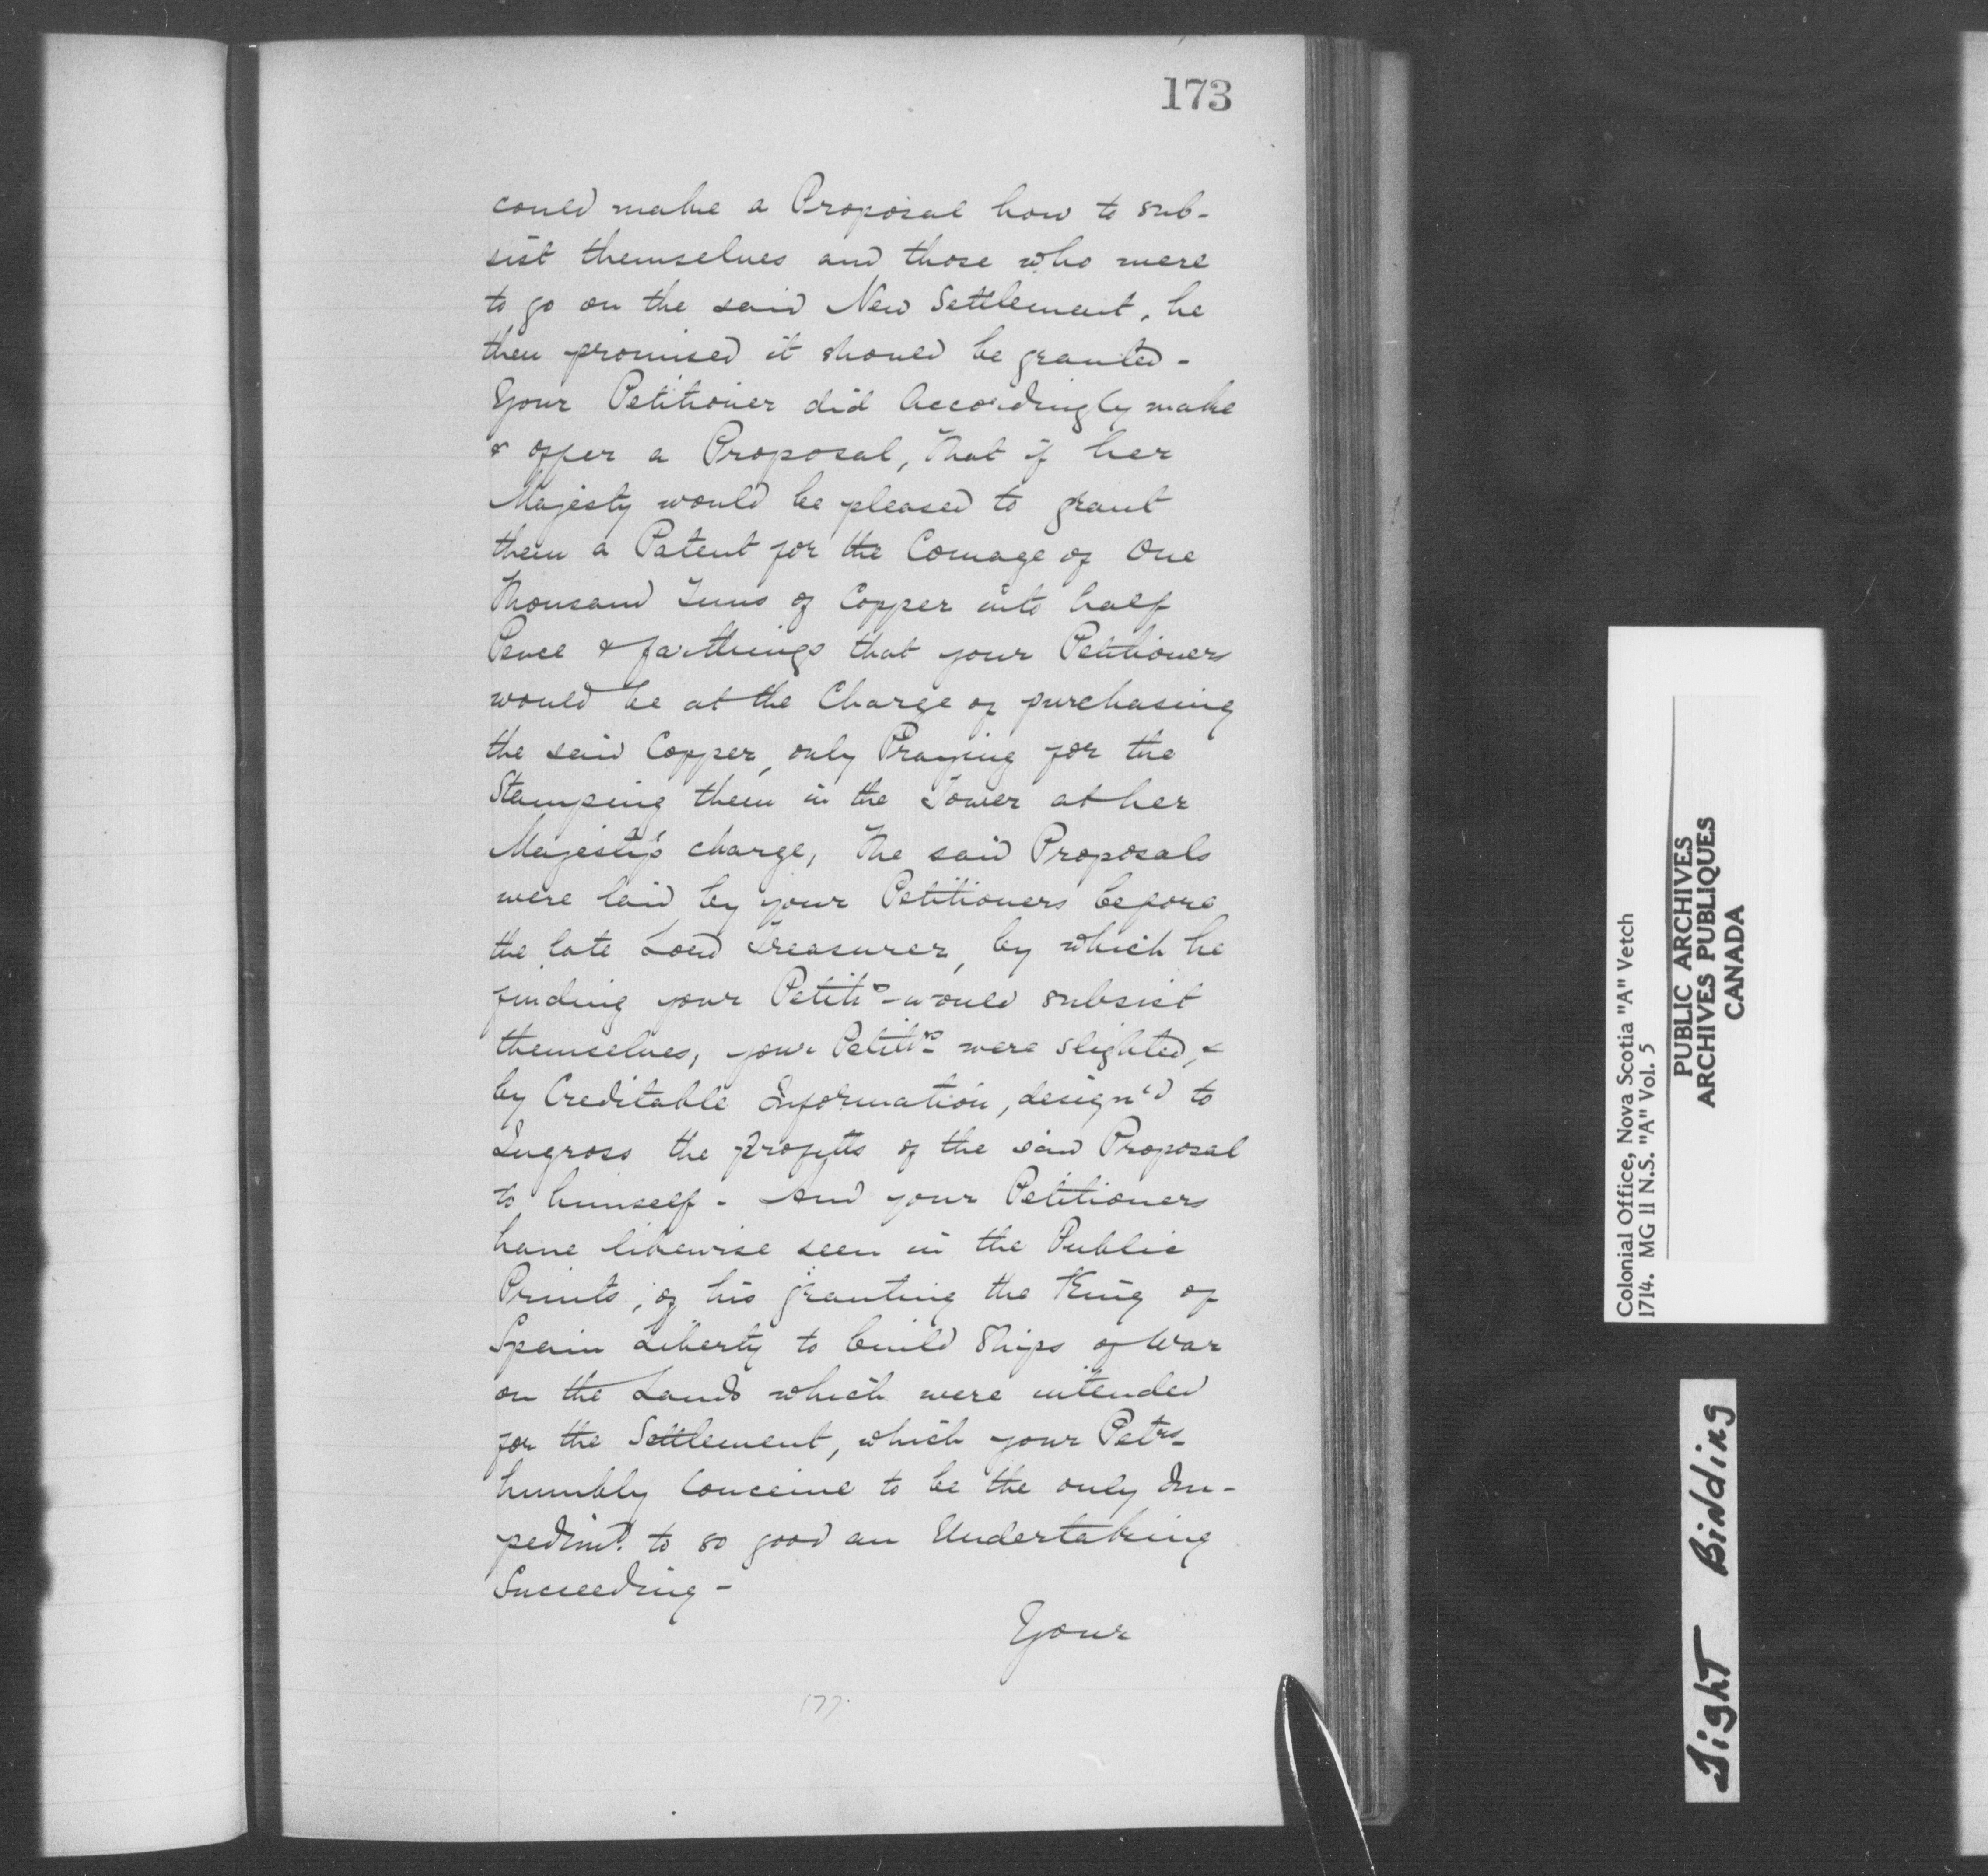 173
could make a Proposal how to sub-
sist themselves and those who were
to go on the said New Settlement, he
then promised it should be granted -
Your Petitioner did Accordingly make
& offer a Proposal, That if her
Majesty would be pleased to grant
them a Patent for the Coinage of One
Thousand Tuns of Copper into half
Pence & farthings that your Petitioners
would be at the Charge of purchasing
the said Copper, only Praying for the
Stamping them in the Tower at her
Majesty's charge, The said Proposals
were laid by your Petitioners before
the late Lord Treasurer, by which he
finding your Petitrs would subsist
themselves, your Petitrs were slighted, &
by Creditable Information, design'd to
Ingross the profitts of the said Proposal
to himself - And your Petitioners
have likewise seen in the Public
Prints, of his granting the King of
Spain Liberty to build Ships of War
on the Lands which were intended
for the Settlement, which your Petrs
humbly Conceive to be the only Im-
pedimt. to so good an Undertaking
Succeeding -
Your
Colonial Office, Nova Scotia "A" Vetch
1714. MG 11 N.S. "A" Vol. 5
PUBLIC ARCHIVES
ARCHIVES PUBLIQUES
CANADA
Tight Bindding